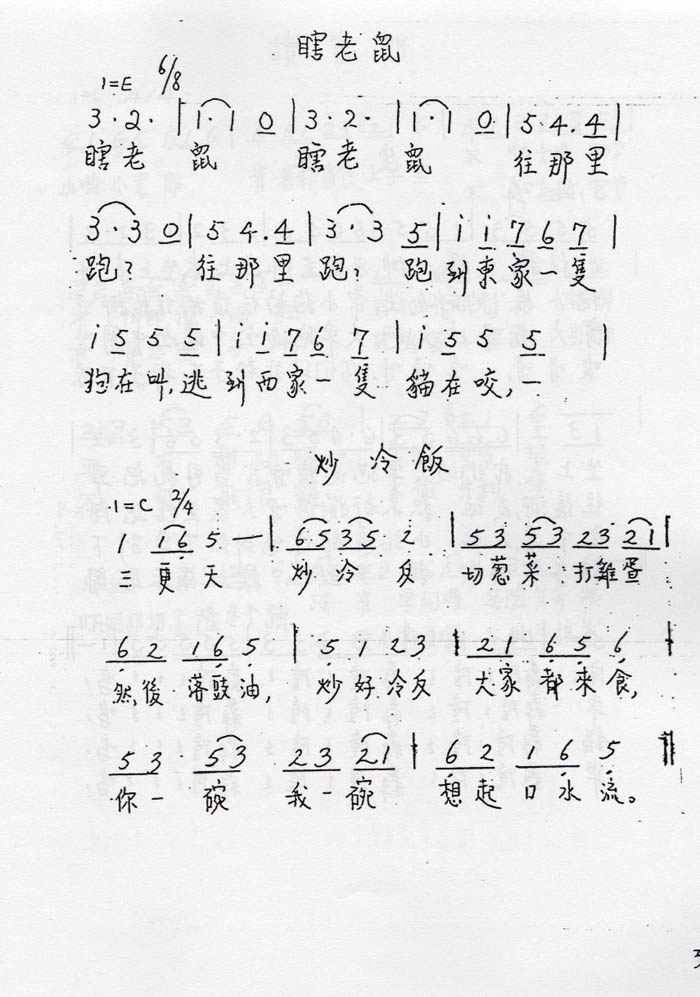 瞎老鼠
1=E 6/8
3·2·|1·1 0|3·2·|1·1 0|5·4·4|
瞎老鼠 瞎老鼠 往那里
3·3 0|5 4·4|3·3 5|i i 7 6 7|
跑? 往那里跑? 跑到東家一隻
i 5 5 5|i i 7 6 7|i 5 5 5 |
狗在叫,逃到西家一隻貓在咬,一
炒冷飯
1=C 2/4
1 16 5 —|65 35 |53 53 23 21|
三更天 炒冷反 切葱菜 打雞蛋
62 16 5|5 1 23|21 6 5 6
然後落豉油,炒好冷反大家都來食,
53·53 23 21|62 16 5‖
你一碗 我一碗 想起口水流。